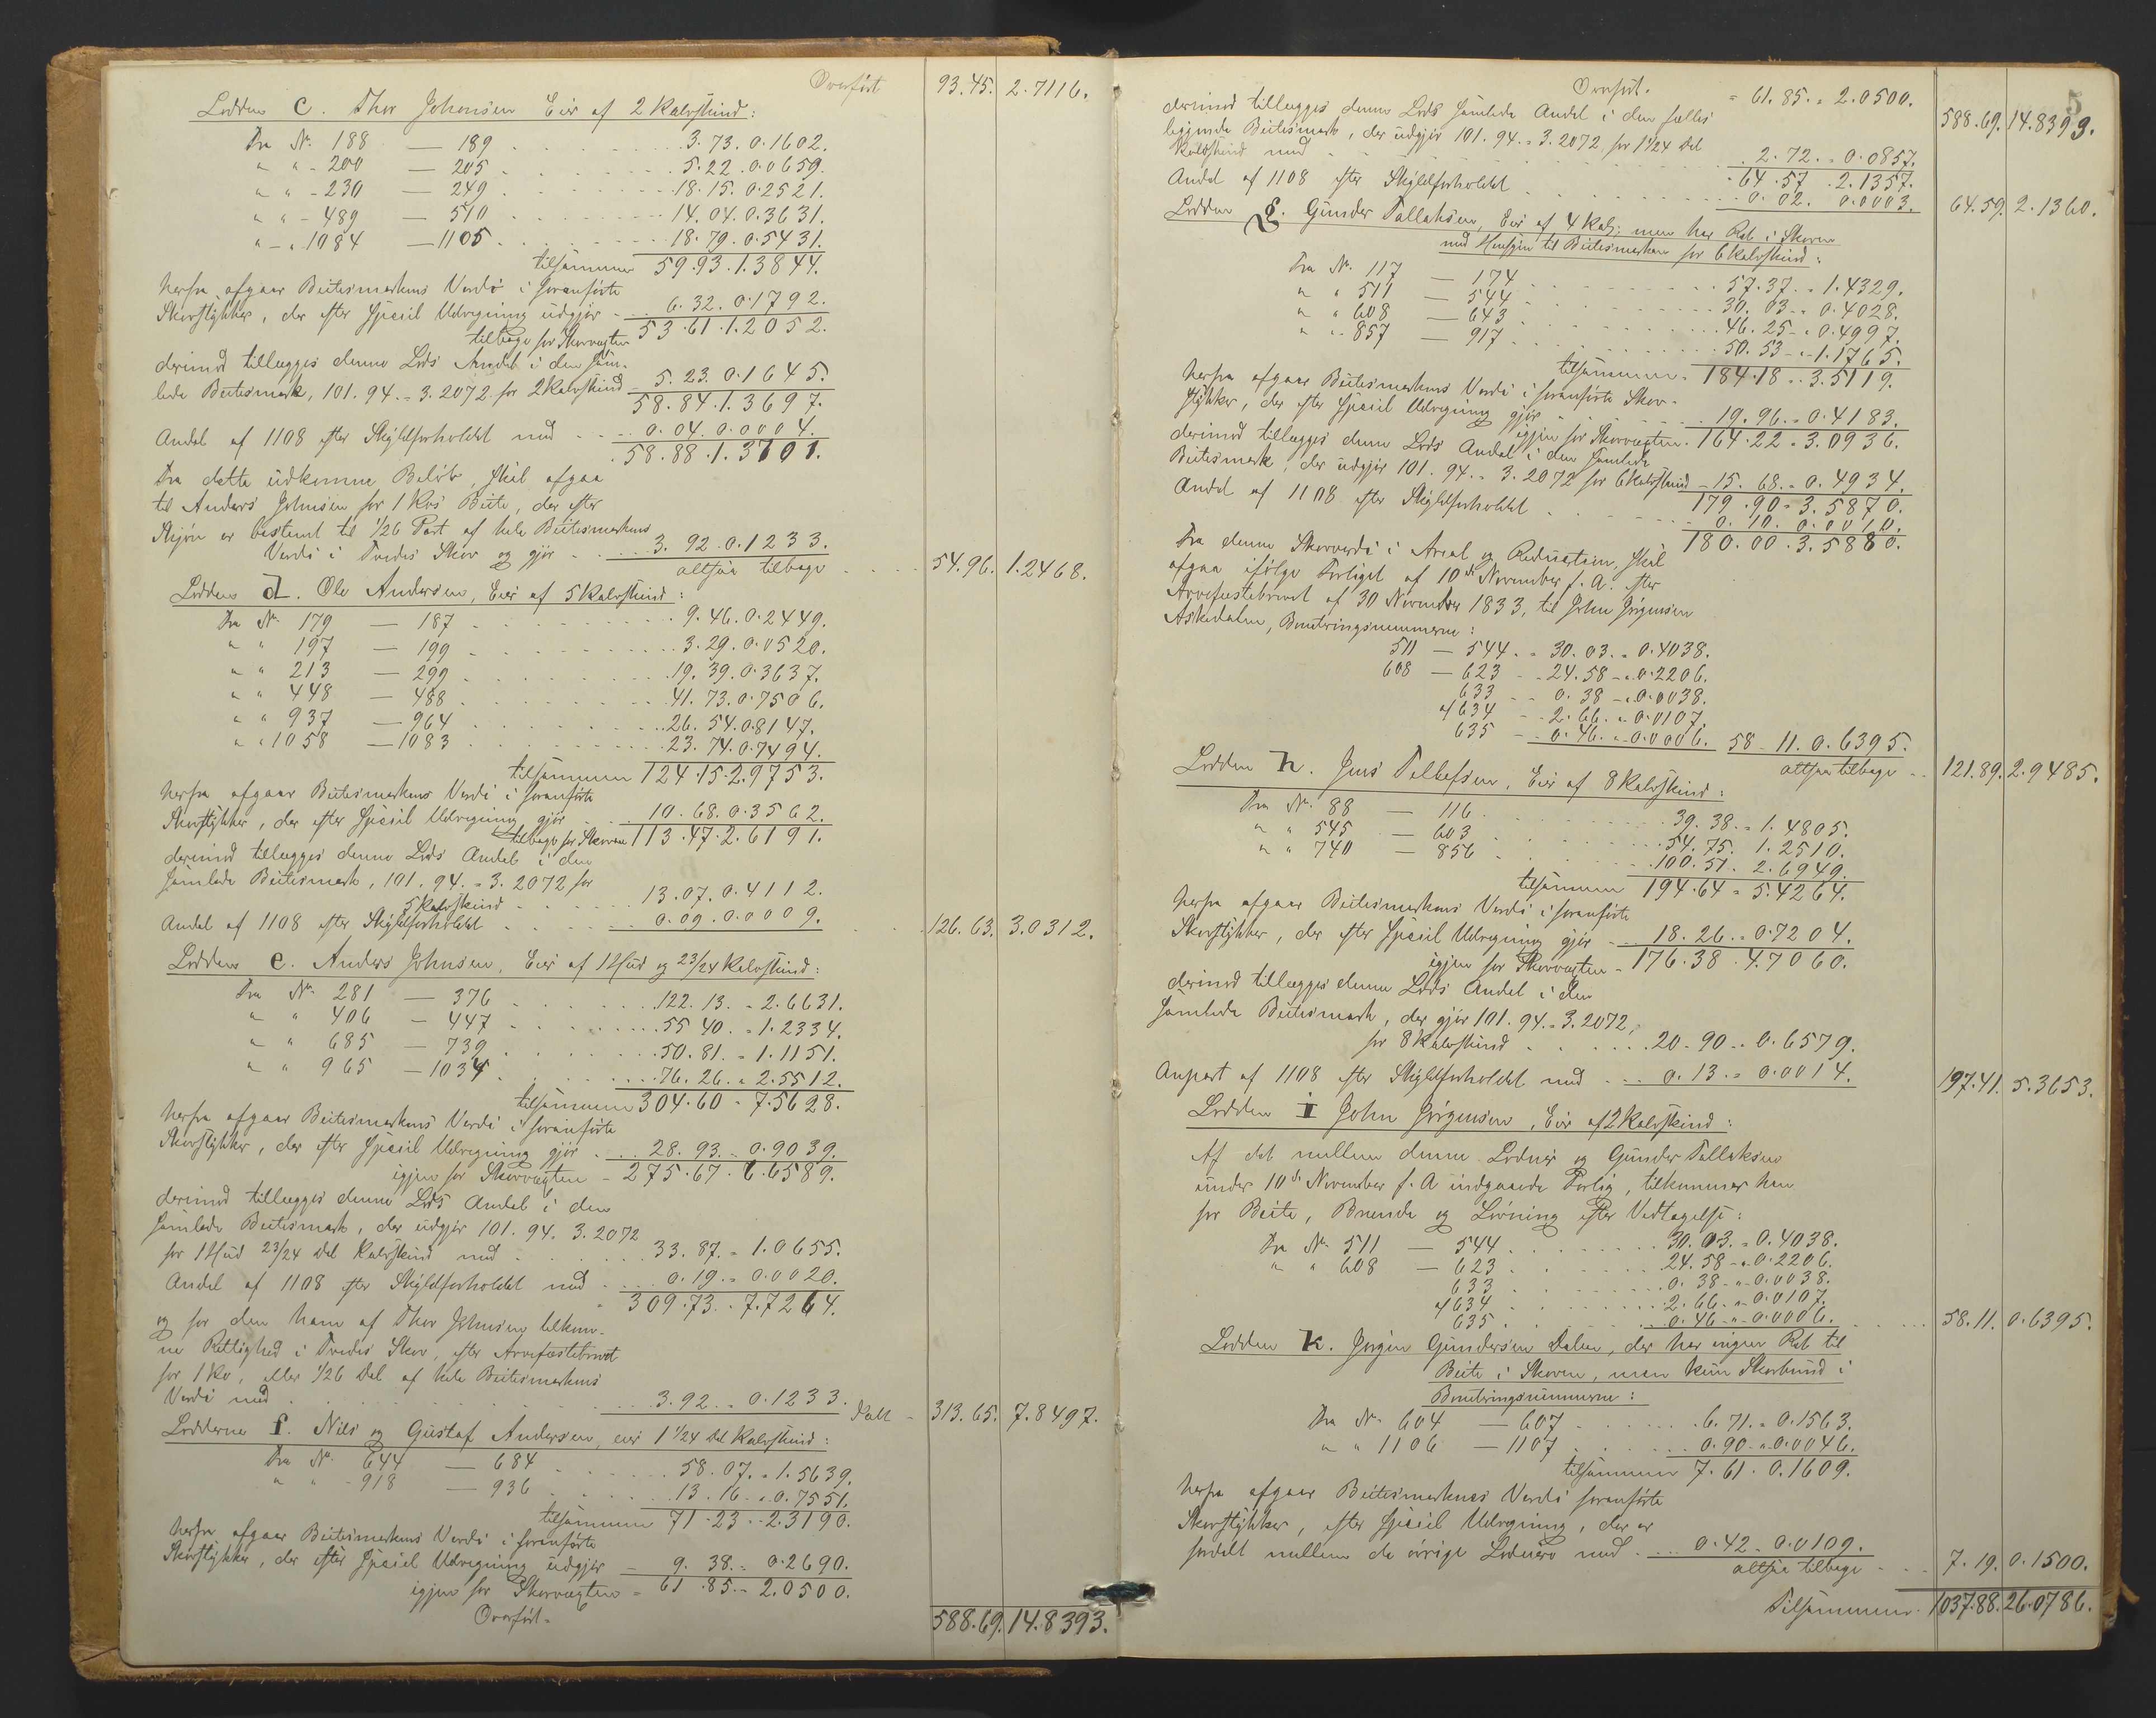 Overført 93.45. 2.7116.
Lodden c. Thor Johnsen Eier af 2 Kalvskind:
Fra No. 188 — 189 . . . 3.73.0.1602.
" " - 200 — 205 . . . 5.22.0.0659.
" " - 230 — 249 . . . 18.15.0.2521.
" " - 489 — 510 . . . 14.04.0.3631.
" - " 1084 — 1105 . . . 18.79.0.5431.
tilsammen 59.93.1.3844.
herfra afgaar Beitesmarkens Værdi i foranførte
Skovstykker, der efter speciel Udregning udgjør - 6.32.0.1792.
tilbage for Skovvægten 53.61.1.2052.
derimod tillægges denne Lods Andel i den sam-
lede Beitesmark, 101.94. " 3.2072 for 2 Kalvskind - 5.23.0.1645.
58.84.1.3697.
Andel af 1108 efter Skyldforholdet med . . . 0.04.0.0004.
58.88.1.3701.
Fra dette udkomne Beløb, skal afgaa
til Anders Johnsen for 1 Kos Beite, der efter
Skjøn er bestemt til 1/26 Part af hele Beitesmarkens
Værdi i Tvedes Skov og gjør . . . 3.92.0.1233.
altsaa tilbage . . . 54.96. 1.2468.
Lodden d. Ole Andersen, Eier af 5 Kalvskind:
Fra No. 179 — 187 . . . 9.46.0.2449.
" " 197 — 199 . . . 3.29.0.0520.
" " 213 — 299 . . . 19.39.0.3637.
" " 448 — 488 . . . 41.73.0.7506.
" " 937 — 964 . . . 26.54.0.8147.
" " 1058 — 1083 . . . 23.74.0.7494.
tilsammen 124.15.2.9753.
herfra afgaar Beitesmarkens Værdi i foranførte
Skovstykker, der efter speciel Udregning gjør . . 10.68.0.3562.
tilbage for Skoven 113.47.2.6191.
derimod tillægges denne Lods Andel i den
samlede Beitesmark, 101.94. " 3.2072 for
5 Kalvskind . . . 13.07.0.4112.
Andel af 1108 efter Skyldforholdet . . . 0.09.0.0009. . . 126.63. 3.0312.
Lodden e. Anders Johnsen, Eier af 1 Hud og 23/24 Kalvskind:
Fra No. 281 — 376 . . . 122.13. " 2.6631.
" " 406 — 447 . . . 55 40. " 1.2334.
" " 685 — 739 . . . 50.81. " 1.1151.
" " 965 — 1034 . . . 76.26. " 2.5512.
tilsammen 304.60 - 7.5628.
herfra afgaar Beitesmarkens Værdi i foranførte
Skovstykker, der efter speciel Udregning gjør . . 28.93. " 0.9039.
igjen for Skovvægten - 275.67. 6.6589.
derimod tillægges denne Lods Andel i den
samlede Beitesmark, der udgjør 101.94. 3.2072
for 1 Hud 23/24 Del Kalvskind med . . . 33.87. " 1.0655.
Andel af 1108 efter Skyldforholdet med . . . 0.19. " 0.0020.
309.73. " 7.7264.
og for den ham af Thor Johnsen tilkom-
ne Rettighed i Tvedes Skov, efter Arvefæstebrevet
for 1 Ko, eller 1/26 Del af hele Beitesmarkens
Værdi med . . . 3.92. " 0.1233. - 313.65. 7.8497.
Lodderne f. Nils og Gustaf Andersen, eier 1 1/24 Del Kalvskind:
Fra No. 644 — 684 . . . 58.07. " 1.5639.
" " - 918 — 936 . . . 13.16. " 0.7551.
tilsammen 71.23 " 2.3190.
herfra afgaar Beitesmarkens Værdi i foranførte
Skovstykker, der efter speciel Udregning udgjør - 9.38. " 0.2690.
igjen for Skovvægten " 61.85. " 2.0500.
Overført - 588.69. 14.8393.
5
Overført. " 61.85. " 2.0500. 588.69. 14.8393.
derimod tillægges denne Lods samlede Andel i den fælles
liggende Beitesmark, der udgjør 101.94. " 3.2072 for 1 1/24 Del
Kalvskind med . . . 2.72. " 0.0857.
" 64.57 . 2.1357.
Andel af 1108 efter Skyldforholdet . . . 0.02. 0.0003. 64.59. 2.1360.
Lodden g. Gunder Tallaksen, Eier af 4 Kalv; men har Ret i Skoven
med Hensyn til Beitesmarken for 6 Kalvskind:
Fra No. 117 — 174 . . . 57.37. " 1.4329.
" " 511 — 544 . . . 30.03. " 0.4028.
" " 608 — 643 . . . 46.25 - " 0.4997.
" " 857 — 917 . . . 50.53 - " 1.1765.
tilsammen " 184.18 " 3.5119.
herfra afgaar Beitesmarkens Værdi i foranførte Skov-
stykker, der efter speciel Udregning gjør . . . 19.96. " 0.4183.
igjen for Skovvægten " 164.22 " 3.0936.
derimod tillægges denne Lods Andel i den samlede
Beitesmark, der udgjør 101.94. " 3.2072 for 6 Kalvskind - 15.68. " 0.4934.
179.90 " 3.5870.
Andel af 1108 efter Skyldforholdet . . . 0.10. 0.0010.
180.00 . 3.5880.
Fra denne Skovværdi i Areal og Reduction, skal
afgaa ifølge Forliget af 10de November f. A. efter
Arvefæstebrevet af 30 November 1833, til John Jørgensen
Askedalen, Boniteringsnummerne:
511 — 544. " 30.03. " 0.4038.
608 — 623 - - 24.58 - " 0.2206.
633 - - 0.38 - " 0.0038.
af 634 - - 2.66. " 0.0107.
635 - - 0.46. " 0.0006. 58 - 11. 0.6395.
altsaa tilbage - - 121.89. 2.9485.
Lodden h. Jens Tellefsen, Eier af 8 Kalvskind:
Fra No. 88 — 116 . . . 39.38. " 1.4805.
" " 545 — 603 . . . 54.75. 1.2510.
" " 740 — 856 . . . 100.51. 2.6949.
tilsammen 194.64 " 5.4264.
herfra afgaar Beitesmarkens Værdi i foranførte
Skovstykker, der efter speciel Udregning gjør - 18.26. " 0.7204.
igjen for Skovvægten - 176.38 . 4.7060.
derimod tillægges denne Lods Andel i den
samlede Beitesmark, der gjør 101.94. " 3.2072,
for 8 Kalvskind . . . 20.90 " 0.6579.
Anpart af 1108 efter Skyldforholdet med . . . 0.13. " 0.0014. 197.41. 5.3653.
Lodden i John Jørgensen, Eier af 2 Kalvskind:
Af det mellem denne Lodeier og Gunder Tallaksen
under 10de November f. A indgaaede Forlig, tilkommer ham
for Beite, Brænde og Løvning efter Vedtagelse:
Fra No. 511 — 544 . . . 30.03. " 0.4038.
" " 608 — 623 . . . 24.58 - " 0.2206.
633 . . . 0.38 - " 0.0038.
af 634 . . . 2.66. " 0.0107.
635 . . . 0.46 - " 0.0006. . . . 58.11. 0.6395.
Lodden k. Jørgen Gundersen Dalen, der har ingen Ret til
Beite i Skoven, men kun Skovbund i
Boniteringsnummerne:
Fra No. 604 — 607 . . . 6.71. " 0.1563.
" " 1106 — 1107 . . . 0.90 - " 0.0046.
tilsammen 7.61. 0.1609.
herfra afgaar Beitesmarkens Værdi foranførte
Skovstykker, efter speciel Udregning, der er
fordelt mellem de øvrige Lodeiere med . . . 0.42 - 0.0109.
altsaa tilbage - . . 7.19. 0.1500.
Tilsammen: 1037.88. 26.0786.